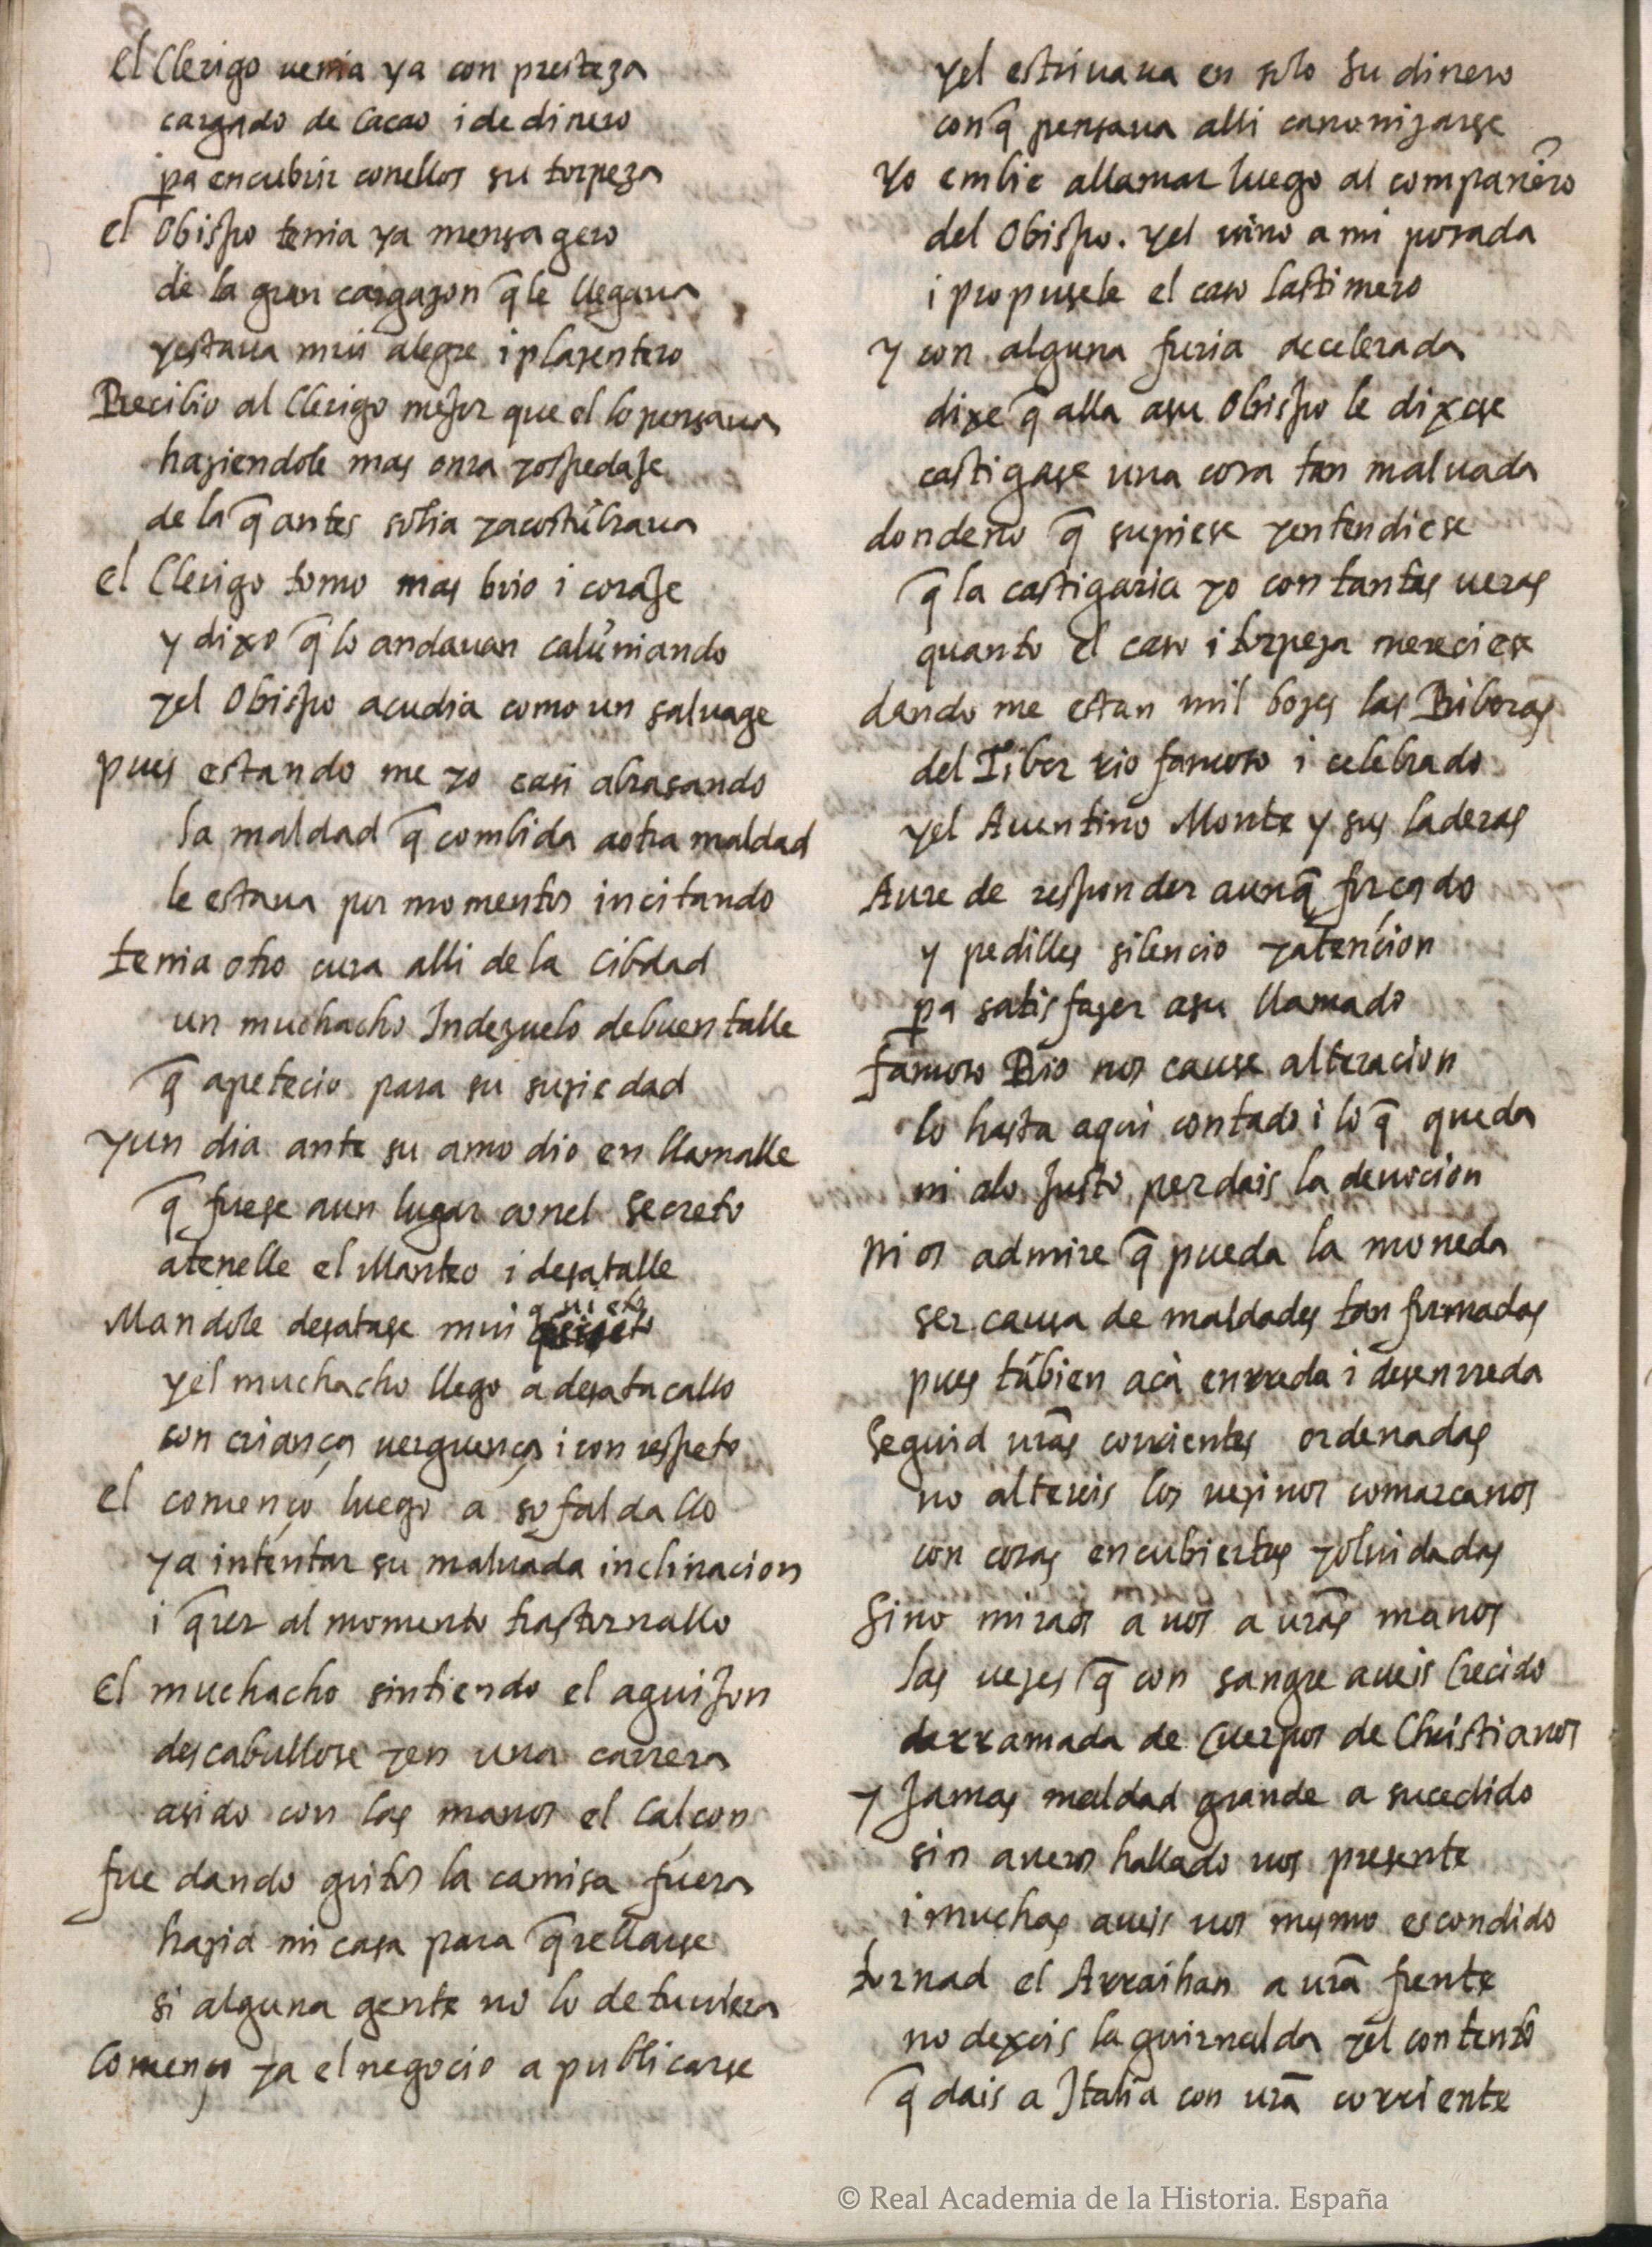 el Clerigo uenia ya con presteza
cargado de Cacao i de dinero
pa encubrir conellos su torpeza
el Obispo tenia ya mensagero
de la gran cargazon q̃ le llegaua
yestaua mui alegre i plazentero
Recibio al Clerigo mejor que el lo pensaua
haziendole mas onrra yospedaje
de la q̃ antes solia yacostũbraua
el Clerigo tomo mas brio i coraje
y dixo q̃ lo andauan calũniando
yel Obispo acudia como un saluage
pues estando me yo casi abrasando
la maldad q̃ combida aotra maldad
le estaua por momentos incitando
tenia otro cura alli de la Cibdad
un muchacho Indezuelo debuen talle
q̃ apetecio para su suziedad
yun dia ante su amo dio en llamalle
q̃ fuese aun lugar conel secreto
atenelle el Manteo i desatalle
Mandole desatase mui quieto
yel muchacho llego a desatacallo
con criança uerguença i con respeto
el començo luego a sofaldallo
ya intentar su maluada inclinacion
i q̃rer al momento trastornallo
el muchacho sintiendo el aguijon
descabullose yen una carrera
asido con las manos el Calçon
fue dando gritos la camisa fuera
hazia mi casa para q̃rellarse
si alguna gente no lo detuuiera
Començo ya el negocio a publicarse
yel estriuaua en solo su dinero
conq̃ pensaua alli canonizarse
Yo embie allamar luego al compañero
del Obispo. yel uino a mi posada
i propusele el caso lastimero
Y con alguna furia accelerada
dixe q̃ alla asu Obispo le dixese
castigase una cosa tan maluada
dondeno q̃ supiese yentendiese
q̃ la castigaria yo con tantas ueras
quanto el caso i torpeza mereciese
dando me estan mil bozes las Riberas
del Tiber rio famoso i celebrado
yel Auentino Monte y sus laderas
Aure de responder aunq̃ forçado
y pedilles silencio yatencion
pa satisfazer asu llamado
famoso Rio nos cause alteracion
lo hasta aqui contado i lo q̃ queda
ni alo justo perdais la deuocion
Ni os admire q̃ pueda la moneda
ser causa de maldades tan formadas
pues tãbien acà enrreda i desenrreda
Seguid urãs corrientes ordenadas
no altereis los uezinos comarcanos
con cosas encubiertas yoluidadas
Sino miraos a uos a urãs manos
las uezes q̃ con sangre aueis Crecido
derramada de Cuerpos de Christianos
y Jamas maldad grande a sucedido
sin aueros hallado uos presente
i muchas aueis uos mysmo escondido
tornad el Arraihan a urã frente
no dexeis la guirnalda yel contento
q̃ dais a Italia con urã corriente
© Real Academia de la Historia. España